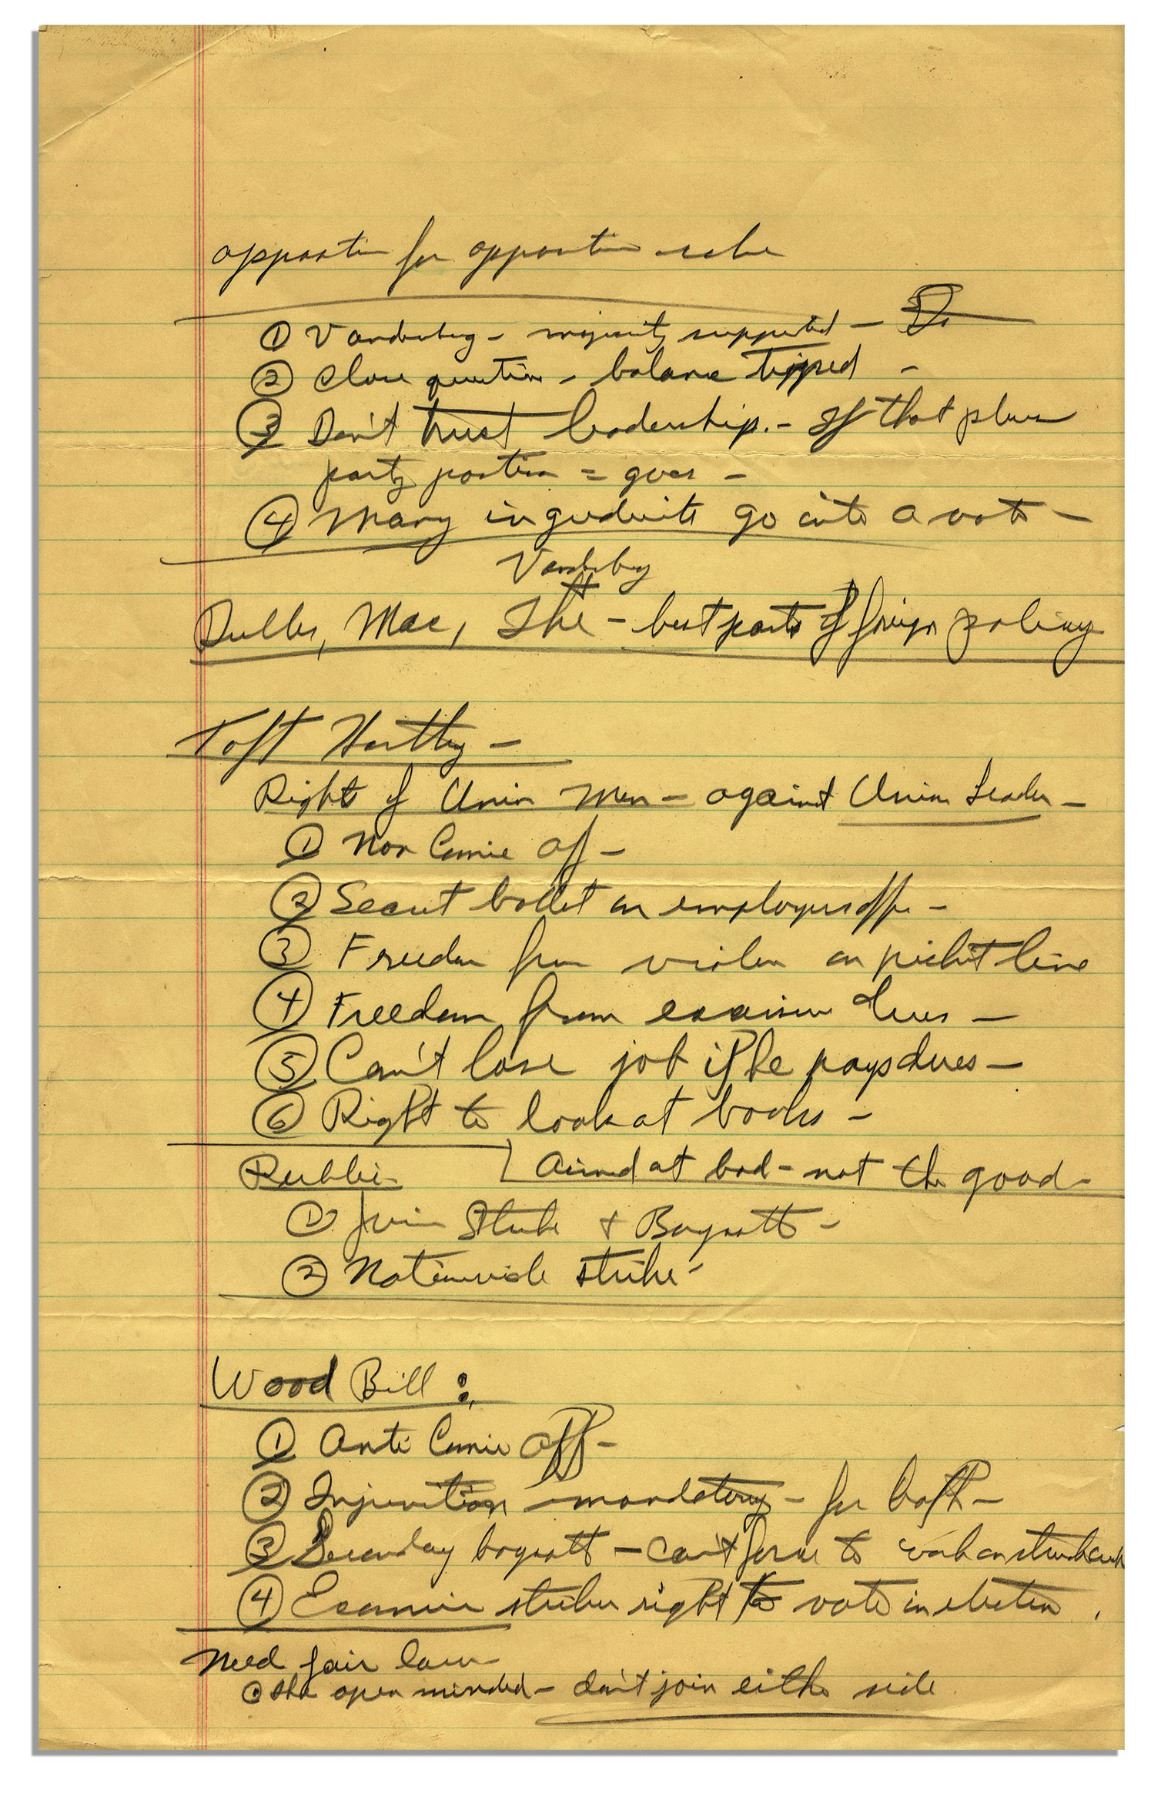 opposition for opposition sake
① Vandenberg - majority supported -
② Close question - balance tipped -
③ Don't trust leadership. - If that plus
party position = goes -
④ Many ingredients go into a vote -
Vandenberg
Dulles, Mac, - best parts of foreign policy
Taft Hartley -
Right of Union Men - against Union Leader -
① Non Comie aff -
② Secret ballot on employers offer -
③ Freedom from violence on picket line
④ Freedom from excessive dues -
⑤ Can't lose job if he pays dues -
⑥ Right to look at books -
Public - Aimed at bad - not the good -
① Juris Strike & Boycotts -
② Nationwide strike -
Wood Bill :
① Anti Comie aff -
② Injunction mandatory - for both -
③ Secondary boycott - can't force to work on struck
④ Economic striker right to vote in election.
Need fair law -
open minded - don't join either side